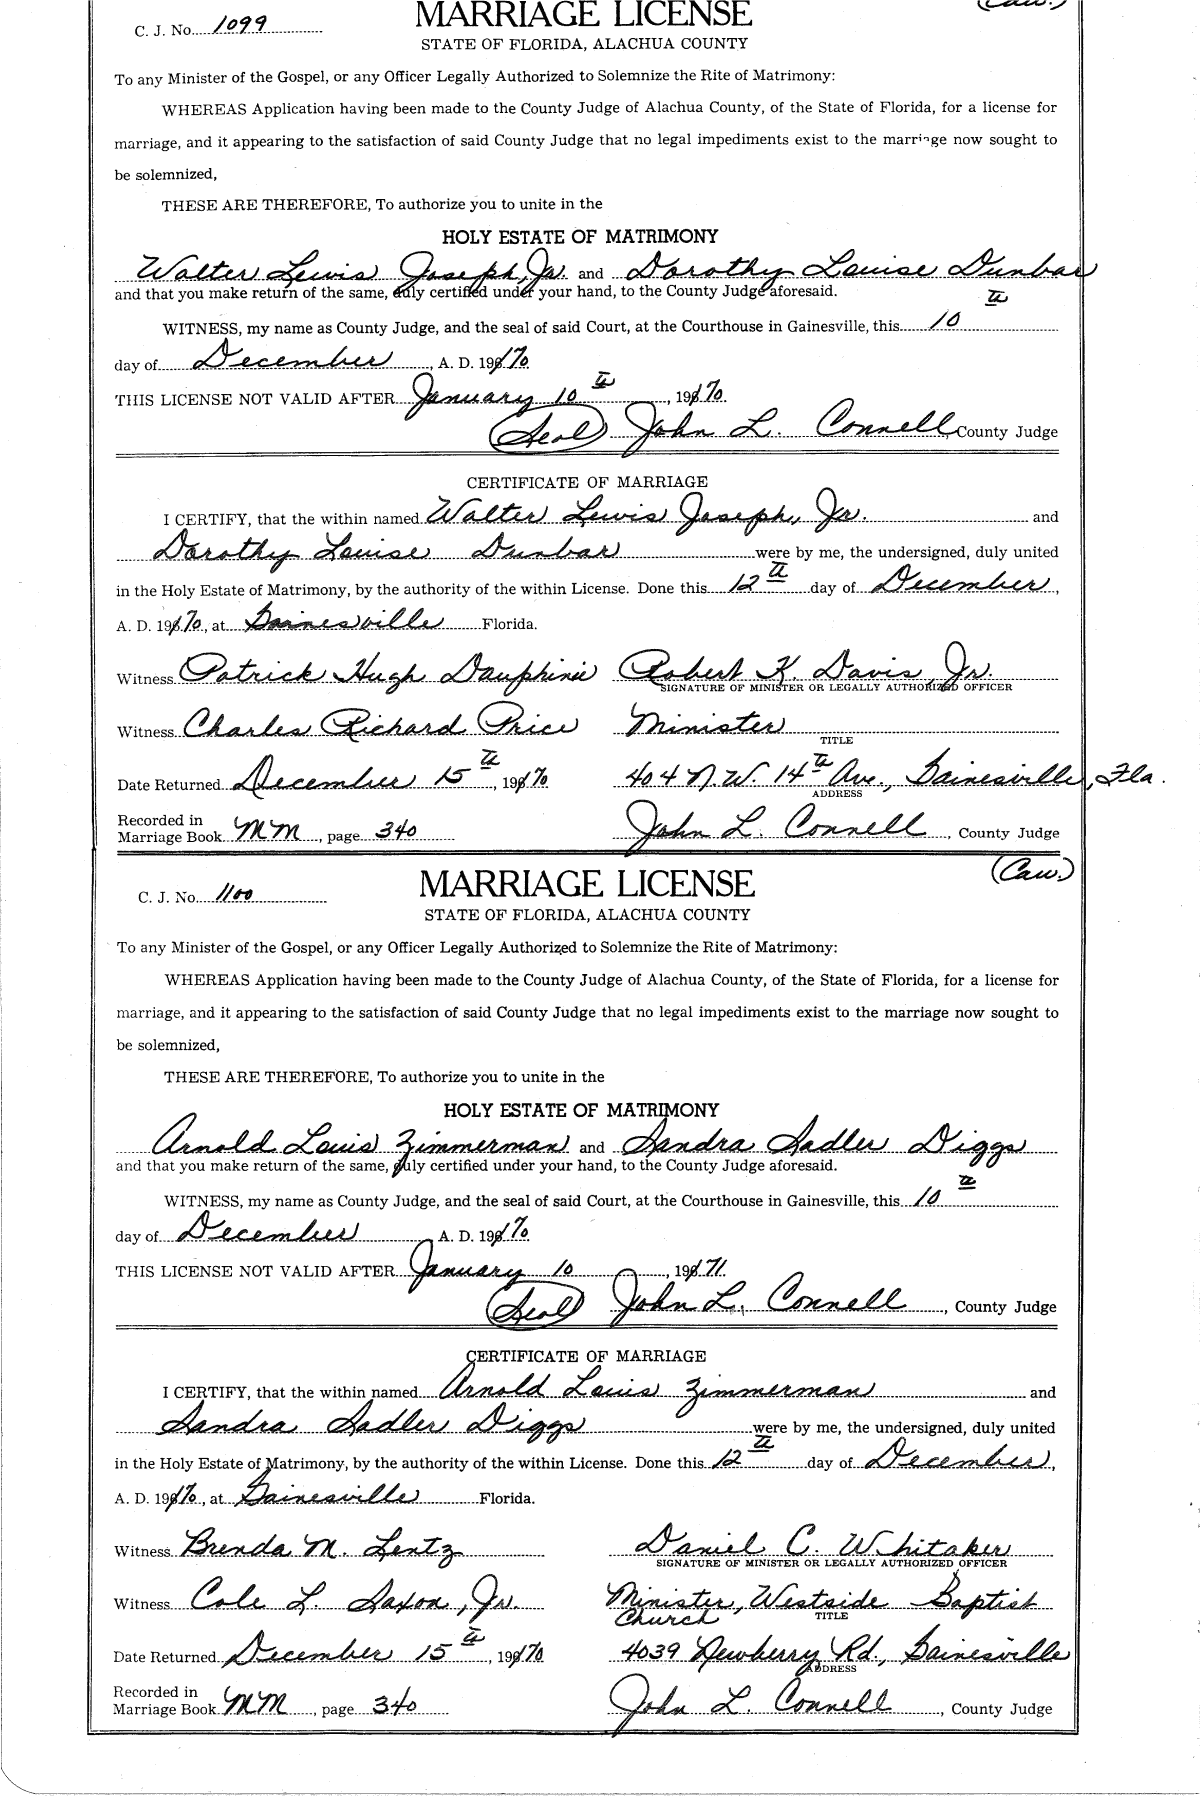 (Caw.)
C. J. No. 1099
MARRIAGE LICENSE
STATE OF FLORIDA, ALACHUA COUNTY
To any Minister of the Gospel, or any Officer Legally Authorized to Solemnize the Rite of Matrimony:
WHEREAS Application having been made to the County Judge of Alachua County, of the State of Florida, for a license for
marriage, and it appearing to the satisfaction of said County Judge that no legal impediments exist to the marriage now sought to
be solemnized,
THESE ARE THEREFORE, To authorize you to unite in the
HOLY ESTATE OF MATRIMONY
Walter Lewis Joseph, Jr. and Dorothy Louise Dunbar
and that you make return of the same, duly certified under your hand, to the County Judge aforesaid.
WITNESS, my name as County Judge, and the seal of said Court, at the Courthouse in Gainesville, this 10th
day of December, A. D. 1970
THIS LICENSE NOT VALID AFTER January 10th, 1970.
(Seal) John L. Connell County Judge
CERTIFICATE OF MARRIAGE
I CERTIFY, that the within named Walter Lewis Joseph, Jr. and
Dorothy Louise Dunbar were by me, the undersigned, duly united
in the Holy Estate of Matrimony, by the authority of the within License. Done this 12th day of December,
A. D. 1970, at Gainesville Florida.
Witness Patrick Hugh Dauphinie Robert K. Davis, Jr.
SIGNATURE OF MINISTER OR LEGALLY AUTHORIZED OFFICER
Witness Charles Richard Price Minister
TITLE
Date Returned December 15th, 1970 404 N.W. 14th Ave., Gainesville, Fla.
ADDRESS
Recorded in
Marriage Book MM, page 340 John L. Connell, County Judge
(Caw.)
C. J. No. 1100
MARRIAGE LICENSE
STATE OF FLORIDA, ALACHUA COUNTY
To any Minister of the Gospel, or any Officer Legally Authorized to Solemnize the Rite of Matrimony:
WHEREAS Application having been made to the County Judge of Alachua County, of the State of Florida, for a license for
marriage, and it appearing to the satisfaction of said County Judge that no legal impediments exist to the marriage now sought to
be solemnized,
THESE ARE THEREFORE, To authorize you to unite in the
HOLY ESTATE OF MATRIMONY
Arnold Louis Zimmerman and Sandra Sadler Diggs
and that you make return of the same, duly certified under your hand, to the County Judge aforesaid.
WITNESS, my name as County Judge, and the seal of said Court, at the Courthouse in Gainesville, this 10th
day of December A. D. 1970
THIS LICENSE NOT VALID AFTER January 10, 1971.
(Seal) John L. Connell, County Judge
CERTIFICATE OF MARRIAGE
I CERTIFY, that the within named Arnold Louis Zimmerman and
Sandra Sadler Diggs were by me, the undersigned, duly united
in the Holy Estate of Matrimony, by the authority of the within License. Done this 12th day of December,
A. D. 1970, at Gainesville Florida.
Witness Brenda M. Lentz Daniel C. Whitaker
SIGNATURE OF MINISTER OR LEGALLY AUTHORIZED OFFICER
Witness Cole L. Saxon, Jr. Minister, Westside Baptist
Church TITLE
Date Returned December 15th, 1970 4039 Newberry Rd., Gainesville
ADDRESS
Recorded in
Marriage Book MM, page 340 John L. Connell, County Judge